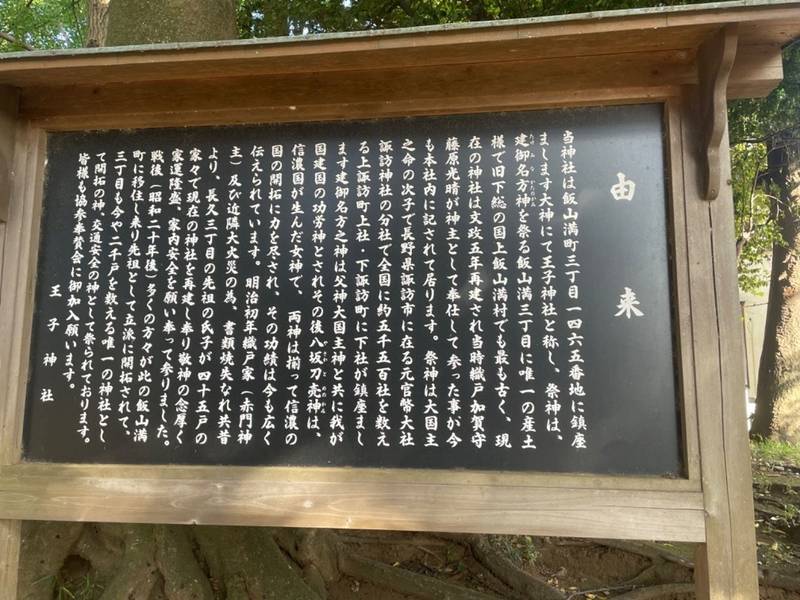 由来
当神社は飯山満町三丁目一四六五番地に鎮座
まします大神にて王子神社と称し、祭神は、
建御名方神を祭る飯山満三丁目に唯一の産土
様で旧下総の国上飯山満村でも最も古く、現
在の神社は文政五年再建され当時織戸加賀守
藤原光晴が神主として奉仕して参った事が今
も本社内に記されて居ります。祭神は大国主
之命の次子で長野県諏訪市に在る元官幣大社
諏訪神社の分社で全国に約五千五百社を数え
る上諏訪町上社、下諏訪町に下社が鎮座まし
ます建御名方之神は父神大国主神と共に我が
国建国の功労神とされその後八坂刀売神は、
信濃国が生んだ女神で、両神は揃って信濃の
国の開拓に力を尽され、その功績は今も広く
伝えられています。明治初年織戸家（赤門神
主）及び近隣大火災の為、書類焼失なれ共昔
より、長久三丁目の先祖の氏子が四十五戸の
家々で現在の神社を再建し奉り敬神の念厚く
家運隆盛、家内安全を願い奉って参りました。
戦後（昭和二十年後）多くの方々が此の飯山満
町に移住し来り先祖として立派に開拓されて、
三丁目も今や二千戸を数える唯一の神社とし
て開拓の神、交通安全の神として祭られております。
皆様も協参奉賛会に御加入願います。
王子神社